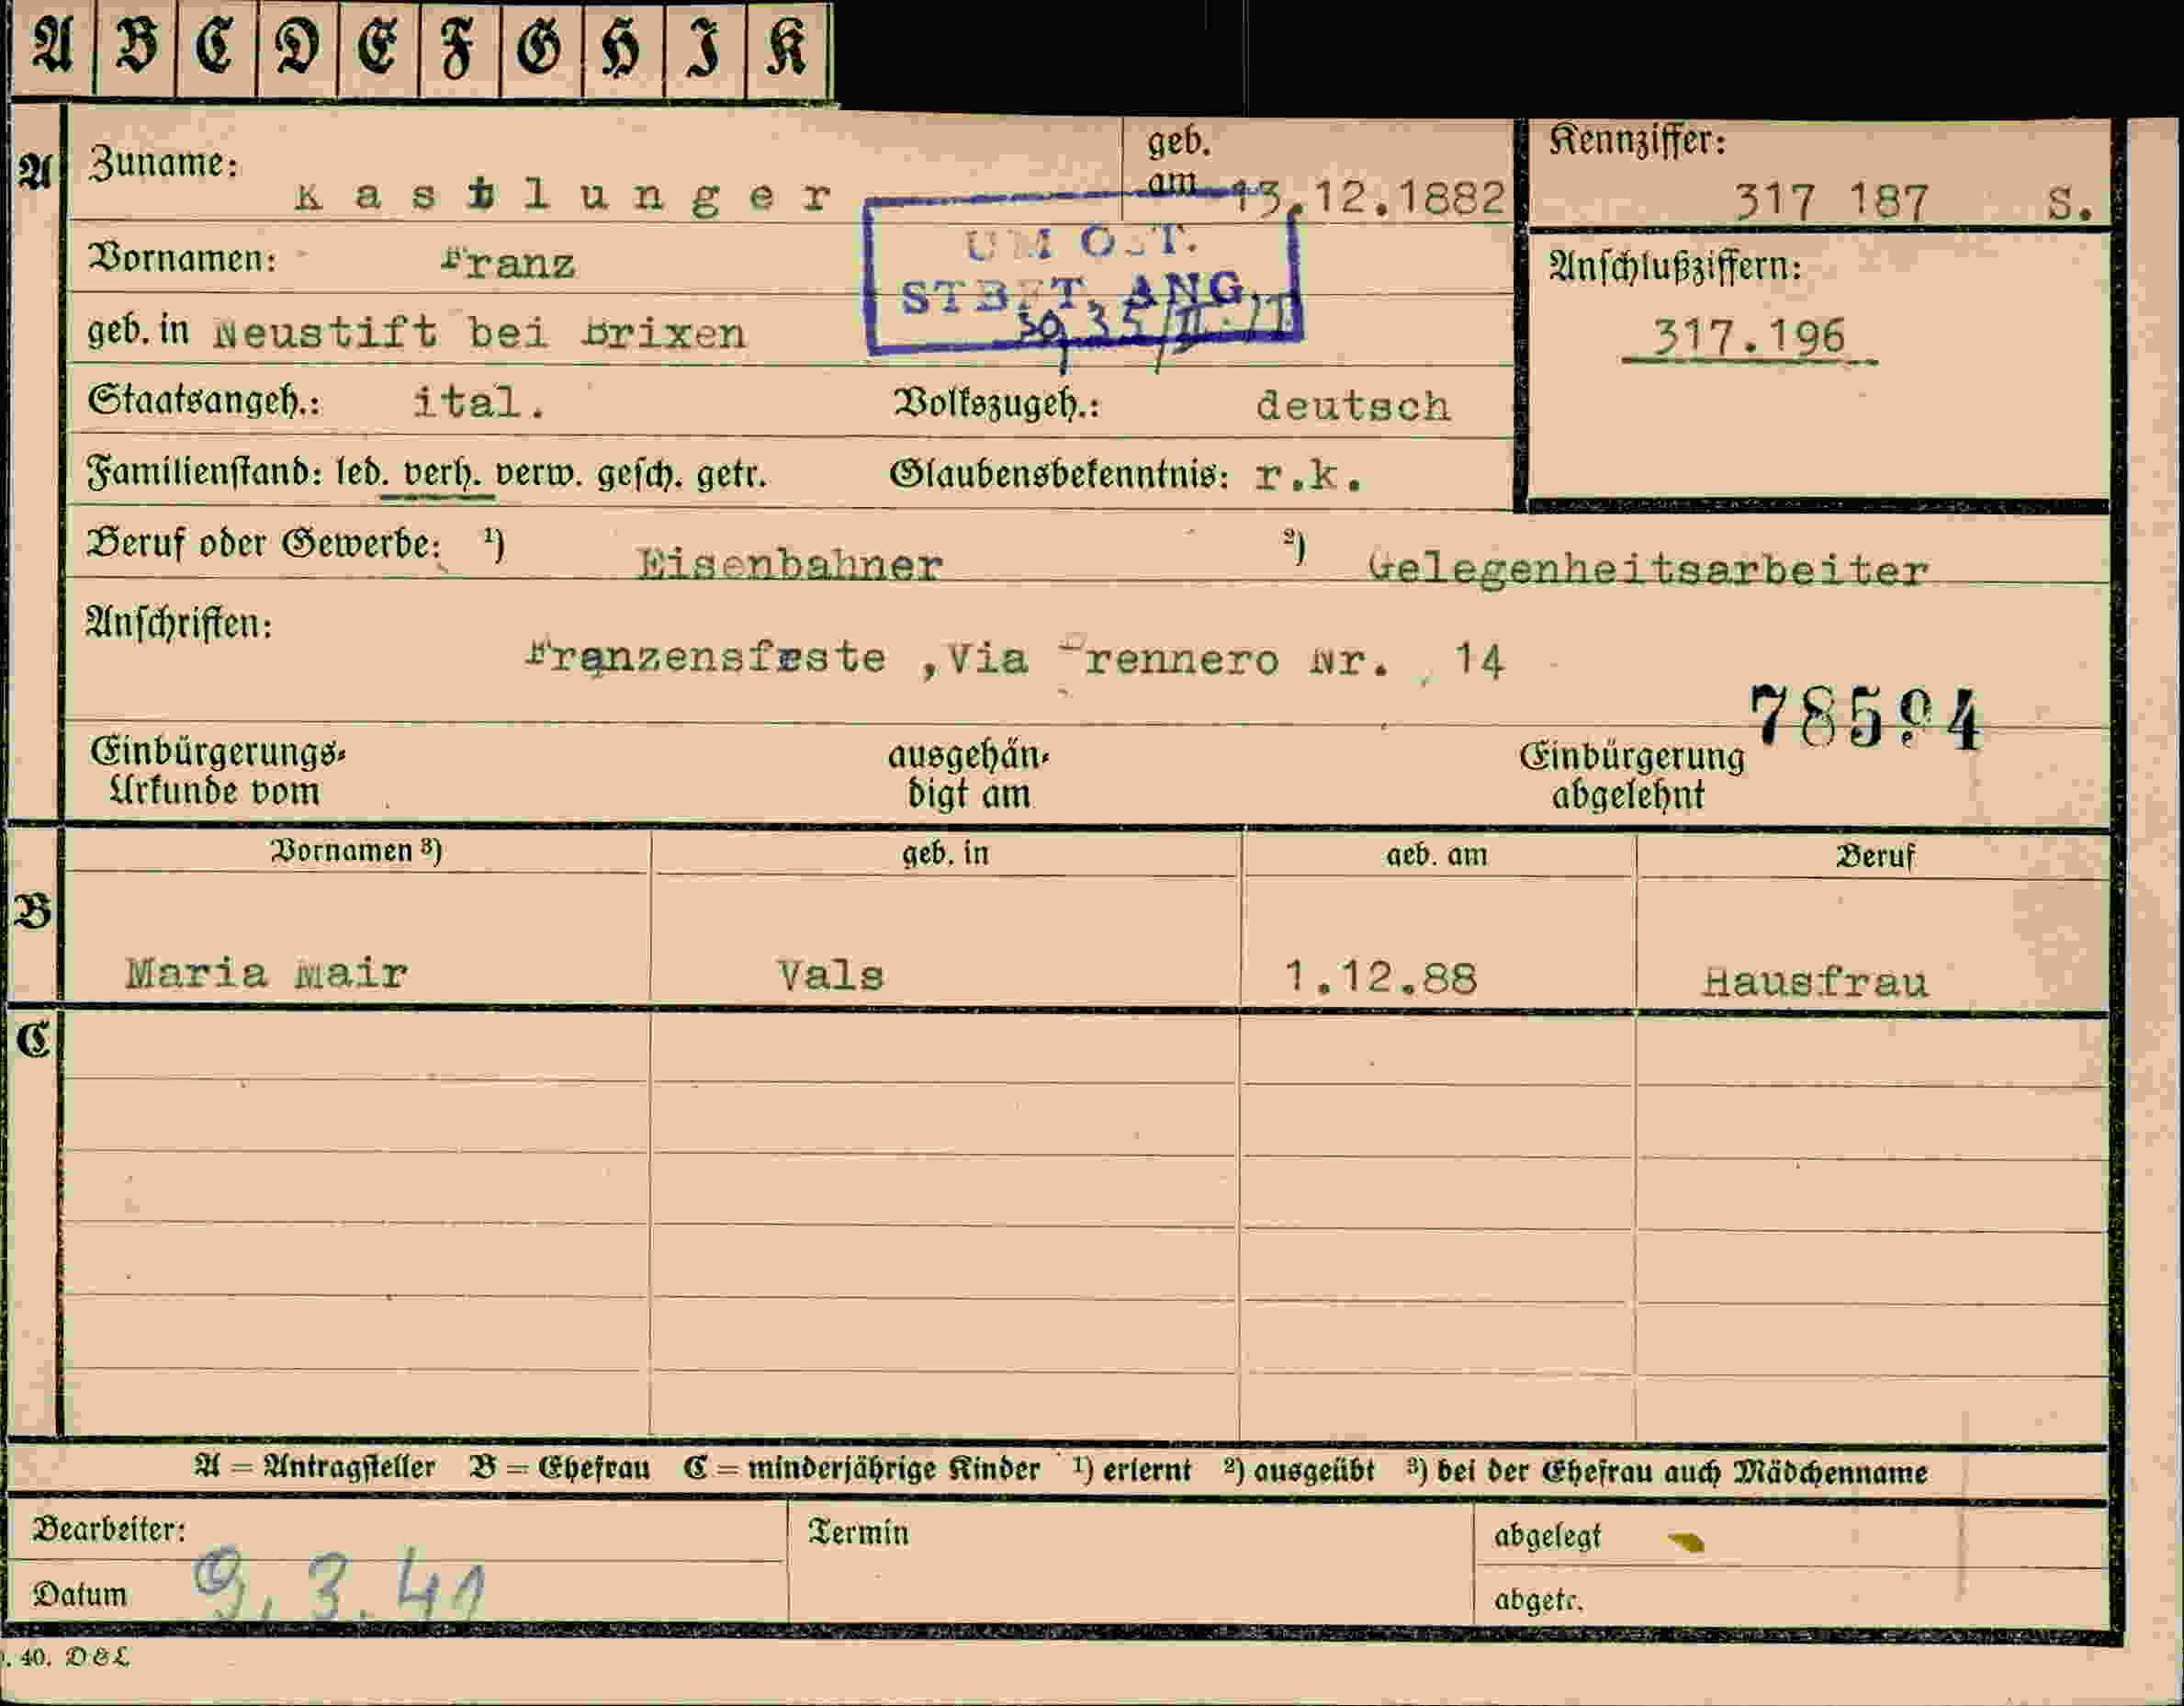 A B C D E F G H I K
A
Zuname: Kastlunger
geb. am 13.12.1882
Kennziffer: 317 187 S.
Vornamen: Franz
UM OST.
STBFT. ANG.
Anschlußziffern:
317.196
geb. in Neustift bei Brixen
Staatsangeh.: ital. Volkszugeh.: deutsch
Familienstand: led. verh. verw. gesch. getr. Glaubensbekenntnis: r.k.
Beruf oder Gewerbe: ¹) Eisenbahner ²) Gelegenheitsarbeiter
Anschriften:
Franzensfeste ,Via Brennero Nr. 14
78594
Einbürgerungs-Urkunde vom ausgehän-digt am Einbürgerung abgelehnt
B
Vornamen ³) geb. in geb. am Beruf
Maria Mair Vals 1.12.88 Hausfrau
C
A = Antragsteller B = Ehefrau C = minderjährige Kinder ¹) erlernt ²) ausgeübt ³) bei der Ehefrau auch Mädchenname
Bearbeiter: Termin abgelegt
Datum 9.3.41 abgetr.
. 40. D&L